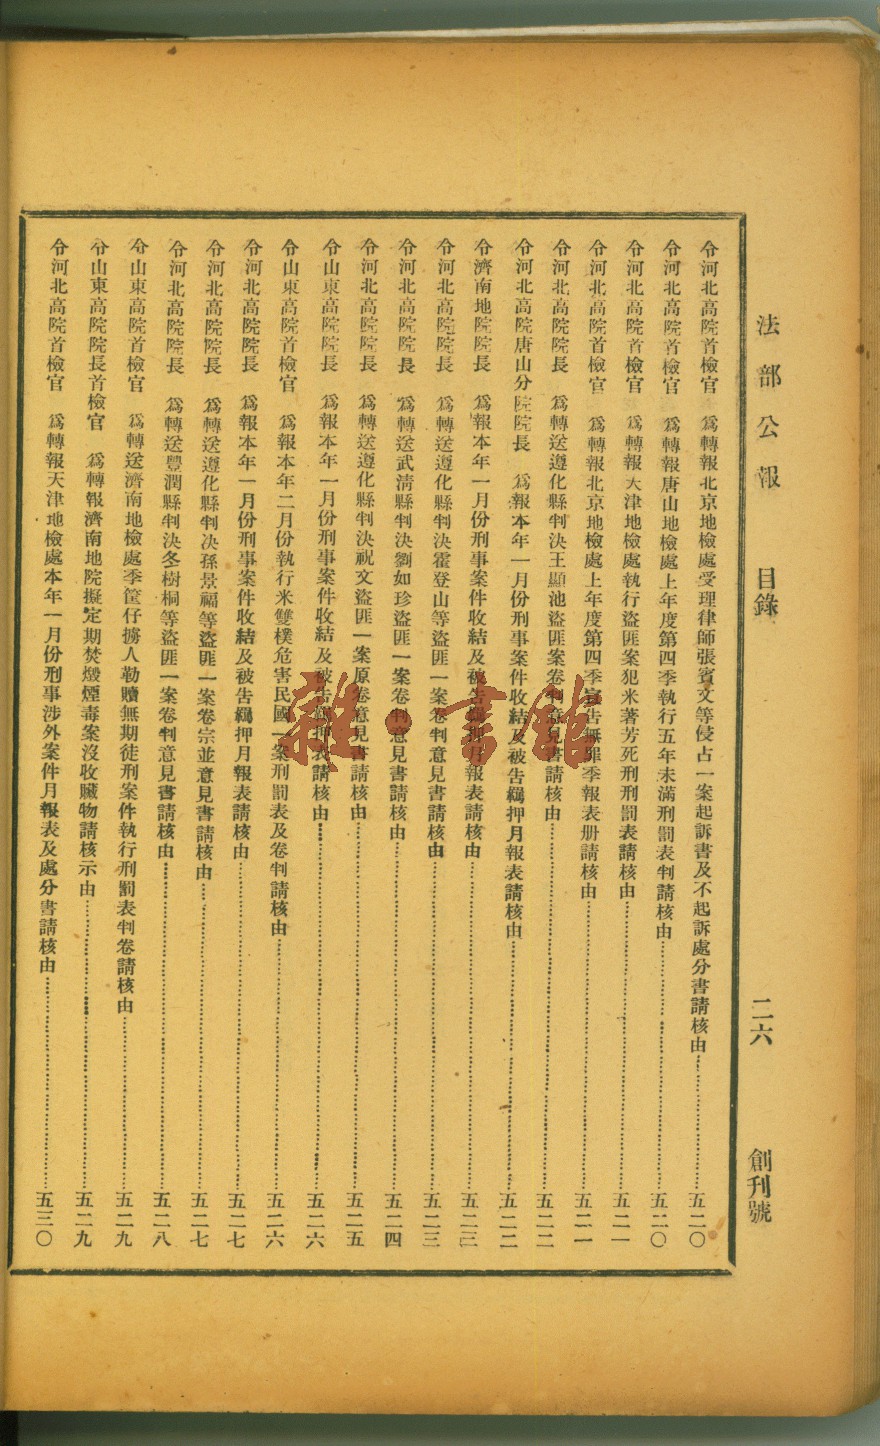 法部公報　目錄　二六　創刊號
令河北高院首檢官　爲轉報北京地檢處受理律師張賓文等侵占一案起訴書及不起訴處分書請核由……五二〇
令河北高院首檢官　爲轉報唐山地檢處上年度第四季執行五年未滿刑罰表判請核由……五二〇
令河北高院首檢官　爲轉報天津地檢處執行盜匪案犯米著芳死刑刑罰表請核由……五二一
令河北高院首檢官　爲轉報北京地檢處上年度第四季宣告無罪季報表册請核由……五二一
令河北高院院長　爲轉送遵化縣判決王顯池盜匪案卷判意見書請核由……五二二
令河北高院唐山分院院長　爲報本年一月份刑事案件收結及被告羈押月報表請核由……五二二
令濟南地院院長　爲報本年一月份刑事案件收結及被告羈押月報表請核由……五二三
令河北高院院長　爲轉送遵化縣判決霍登山等盜匪一案卷判意見書請核由……五二三
令河北高院院長　爲轉送武清縣判決劉如珍盜匪一案卷判意見書請核由……五二四
令河北高院院長　爲轉送遵化縣判決祝文盜匪一案原卷意見書請核由……五二五
令山東高院院長　爲報本年一月份刑事案件收結及被告羈押表請核由……五二六
令山東高院首檢官　爲報本年二月份執行米雙樸危害民國一案刑罰表及卷判請核由……五二六
令河北高院院長　爲報本年一月份刑事案件收結及被告羈押月報表請核由……五二七
令河北高院院長　爲轉送遵化縣判決孫景福等盜匪一案卷宗並意見書請核由……五二七
令河北高院院長　爲轉送豐潤縣判決冬樹桐等盜匪一案卷判意見書請核由……五二八
令山東高院首檢官　爲轉送濟南地檢處季筐仔擄人勒贖無期徒刑案件執行刑罰表判卷請核由……五二九
令山東高院院長首檢官　爲轉報濟南地院擬定期焚燬煙毒案沒收贓物請核示由……五二九
令河北高院首檢官　爲轉報天津地檢處本年一月份刑事涉外案件月報表及處分書請核由……五三〇
雜·書館